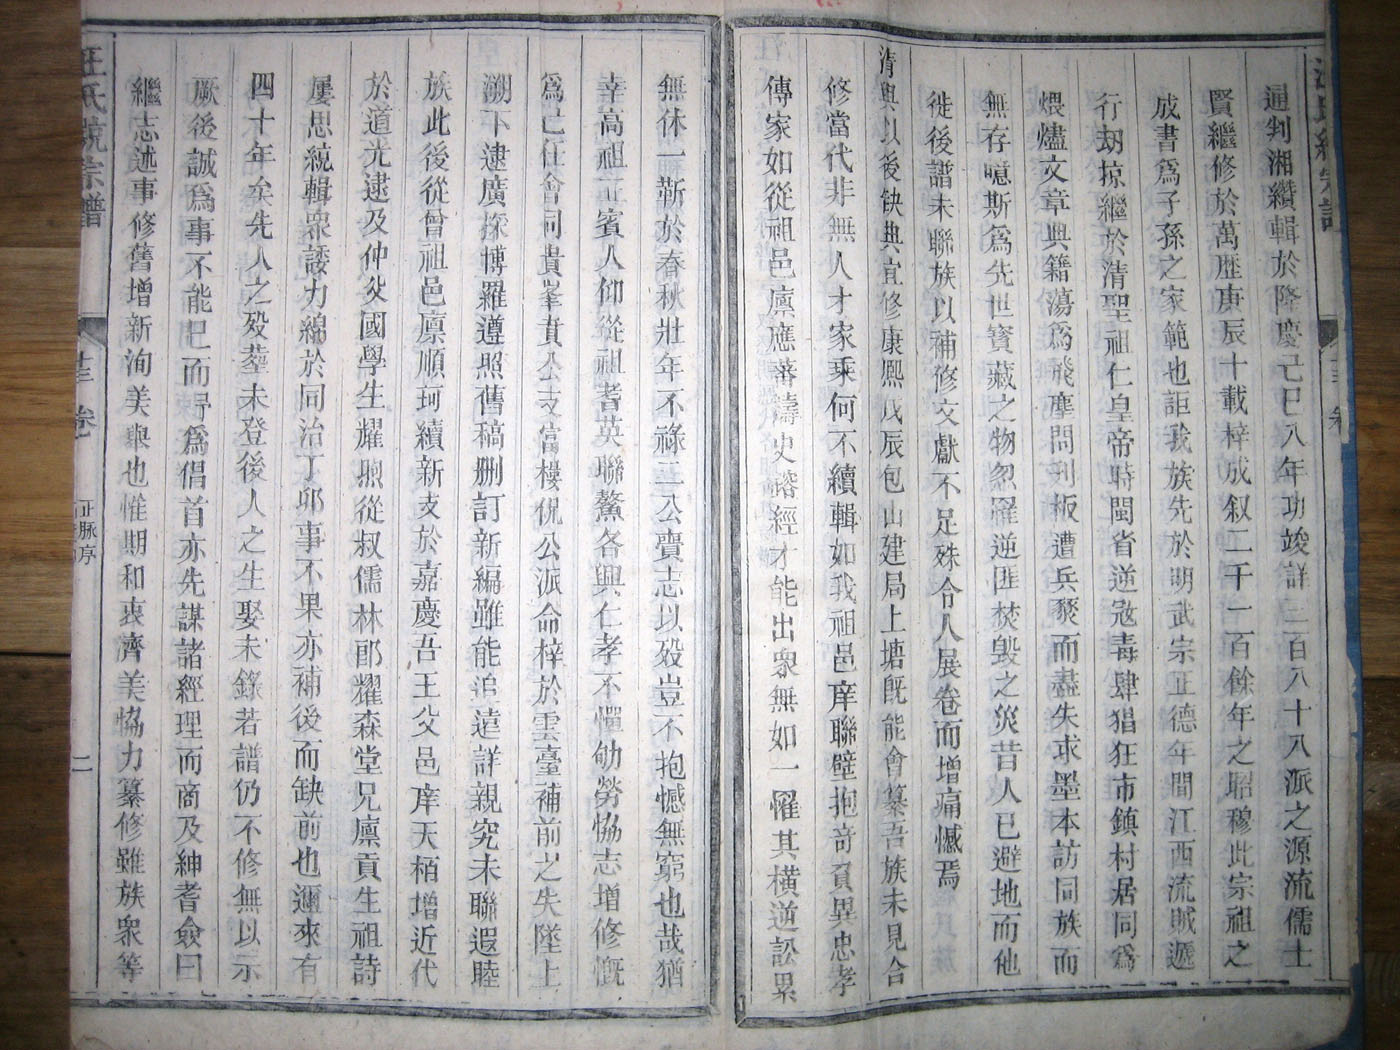 通判湘纘輯於隆慶己巳八年功竣詳三百八十八派之源流儒士
賢繼修於萬歷庚辰十載梓成叙二千一百餘年之昭穆此宗祖之
成書為子孫之家範也詎我族先於明武宗正德年間江西流賊遞
行刧掠繼於清聖祖仁皇帝時閩省逆冦毒肆猖狂市鎮村居同為
煨燼文章典籍蕩為飛塵問列板遭兵燹而盡失求墨本訪同族而
無存噫斯為先世寳藏之物忽罹逆匪焚毁之災昔人已避地而他
徙後譜未聯族以補修文獻不足殊令人展卷而增痛憾焉
清興以後缺典宜修康熈戊辰包山建局上塘旣能會纂吾族未見合
修當代非無人才家乗何不續輯如我祖邑庠聯璧抱竒負異忠孝
傳家如從祖邑廪應蕃鑄史鎔經才能出衆無如一罹其橫逆訟累
無休一靳於春秋壯年不祿三公賫志以殁豈不抱憾無窮也哉猶
幸高祖正賓人仰從祖耆英聯鰲各興仁孝不憚劬勞恊志增修慨
為己任會同貴峯賁公支當樓侊公派命梓於雲臺補前之失墜上
溯下逮廣採博羅遵照舊稿刪訂新編雖能追遠詳親究未聯遐睦
族此後從曾祖邑廪順珂續新支於嘉慶吾王父邑庠天栢增近代
於道光逮及仲父國學生耀煦從叔儒林郎耀森堂兄廪貢生祖詩
屢思統輯衆諉力綿於同治丁卯事不果亦補後而缺前也邇來有
四十年矣先人之殁塟未登後人之生娶未錄若譜仍不修無以示
厥後誠為事不能已而予為倡首亦先謀諸經理而商及紳耆僉曰
繼志述事修舊增新洵美舉也惟期和衷濟美恊力纂修雖族衆等
汪氏統宗譜
卷
正脉序
二